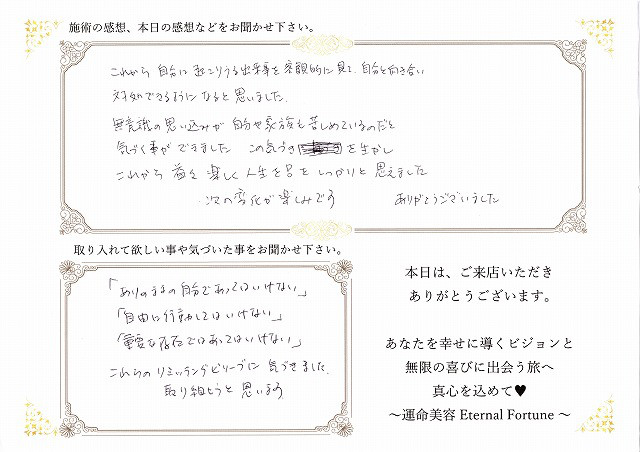 施術の感想、本日の感想などをお聞かせ下さい。
これから 自分に 起こりうる出来事を客観的に見て、自分と向き合い
対処できるようになると思いました。
無意識の思い込みが 自分や家族も苦しめているのだと
気づく事ができました この気づき を生かし
これから 益々 楽しく 人生を しっかりと 思えました
次の変化が楽しみです ありがとうございました
取り入れて欲しい事や気づいた事をお聞かせ下さい。
「ありのままの自分であってはいけない」
「自由に行動してはいけない」
「重要な存在であってはいけない」
これらのリミッティングビリーブに 気づきました。
取り組もうと 思います
本日は、ご来店いただき
ありがとうございます。
あなたを幸せに導くビジョンと
無限の喜びに出会う旅へ
真心を込めて♥
～運命美容 Eternal Fortune ～